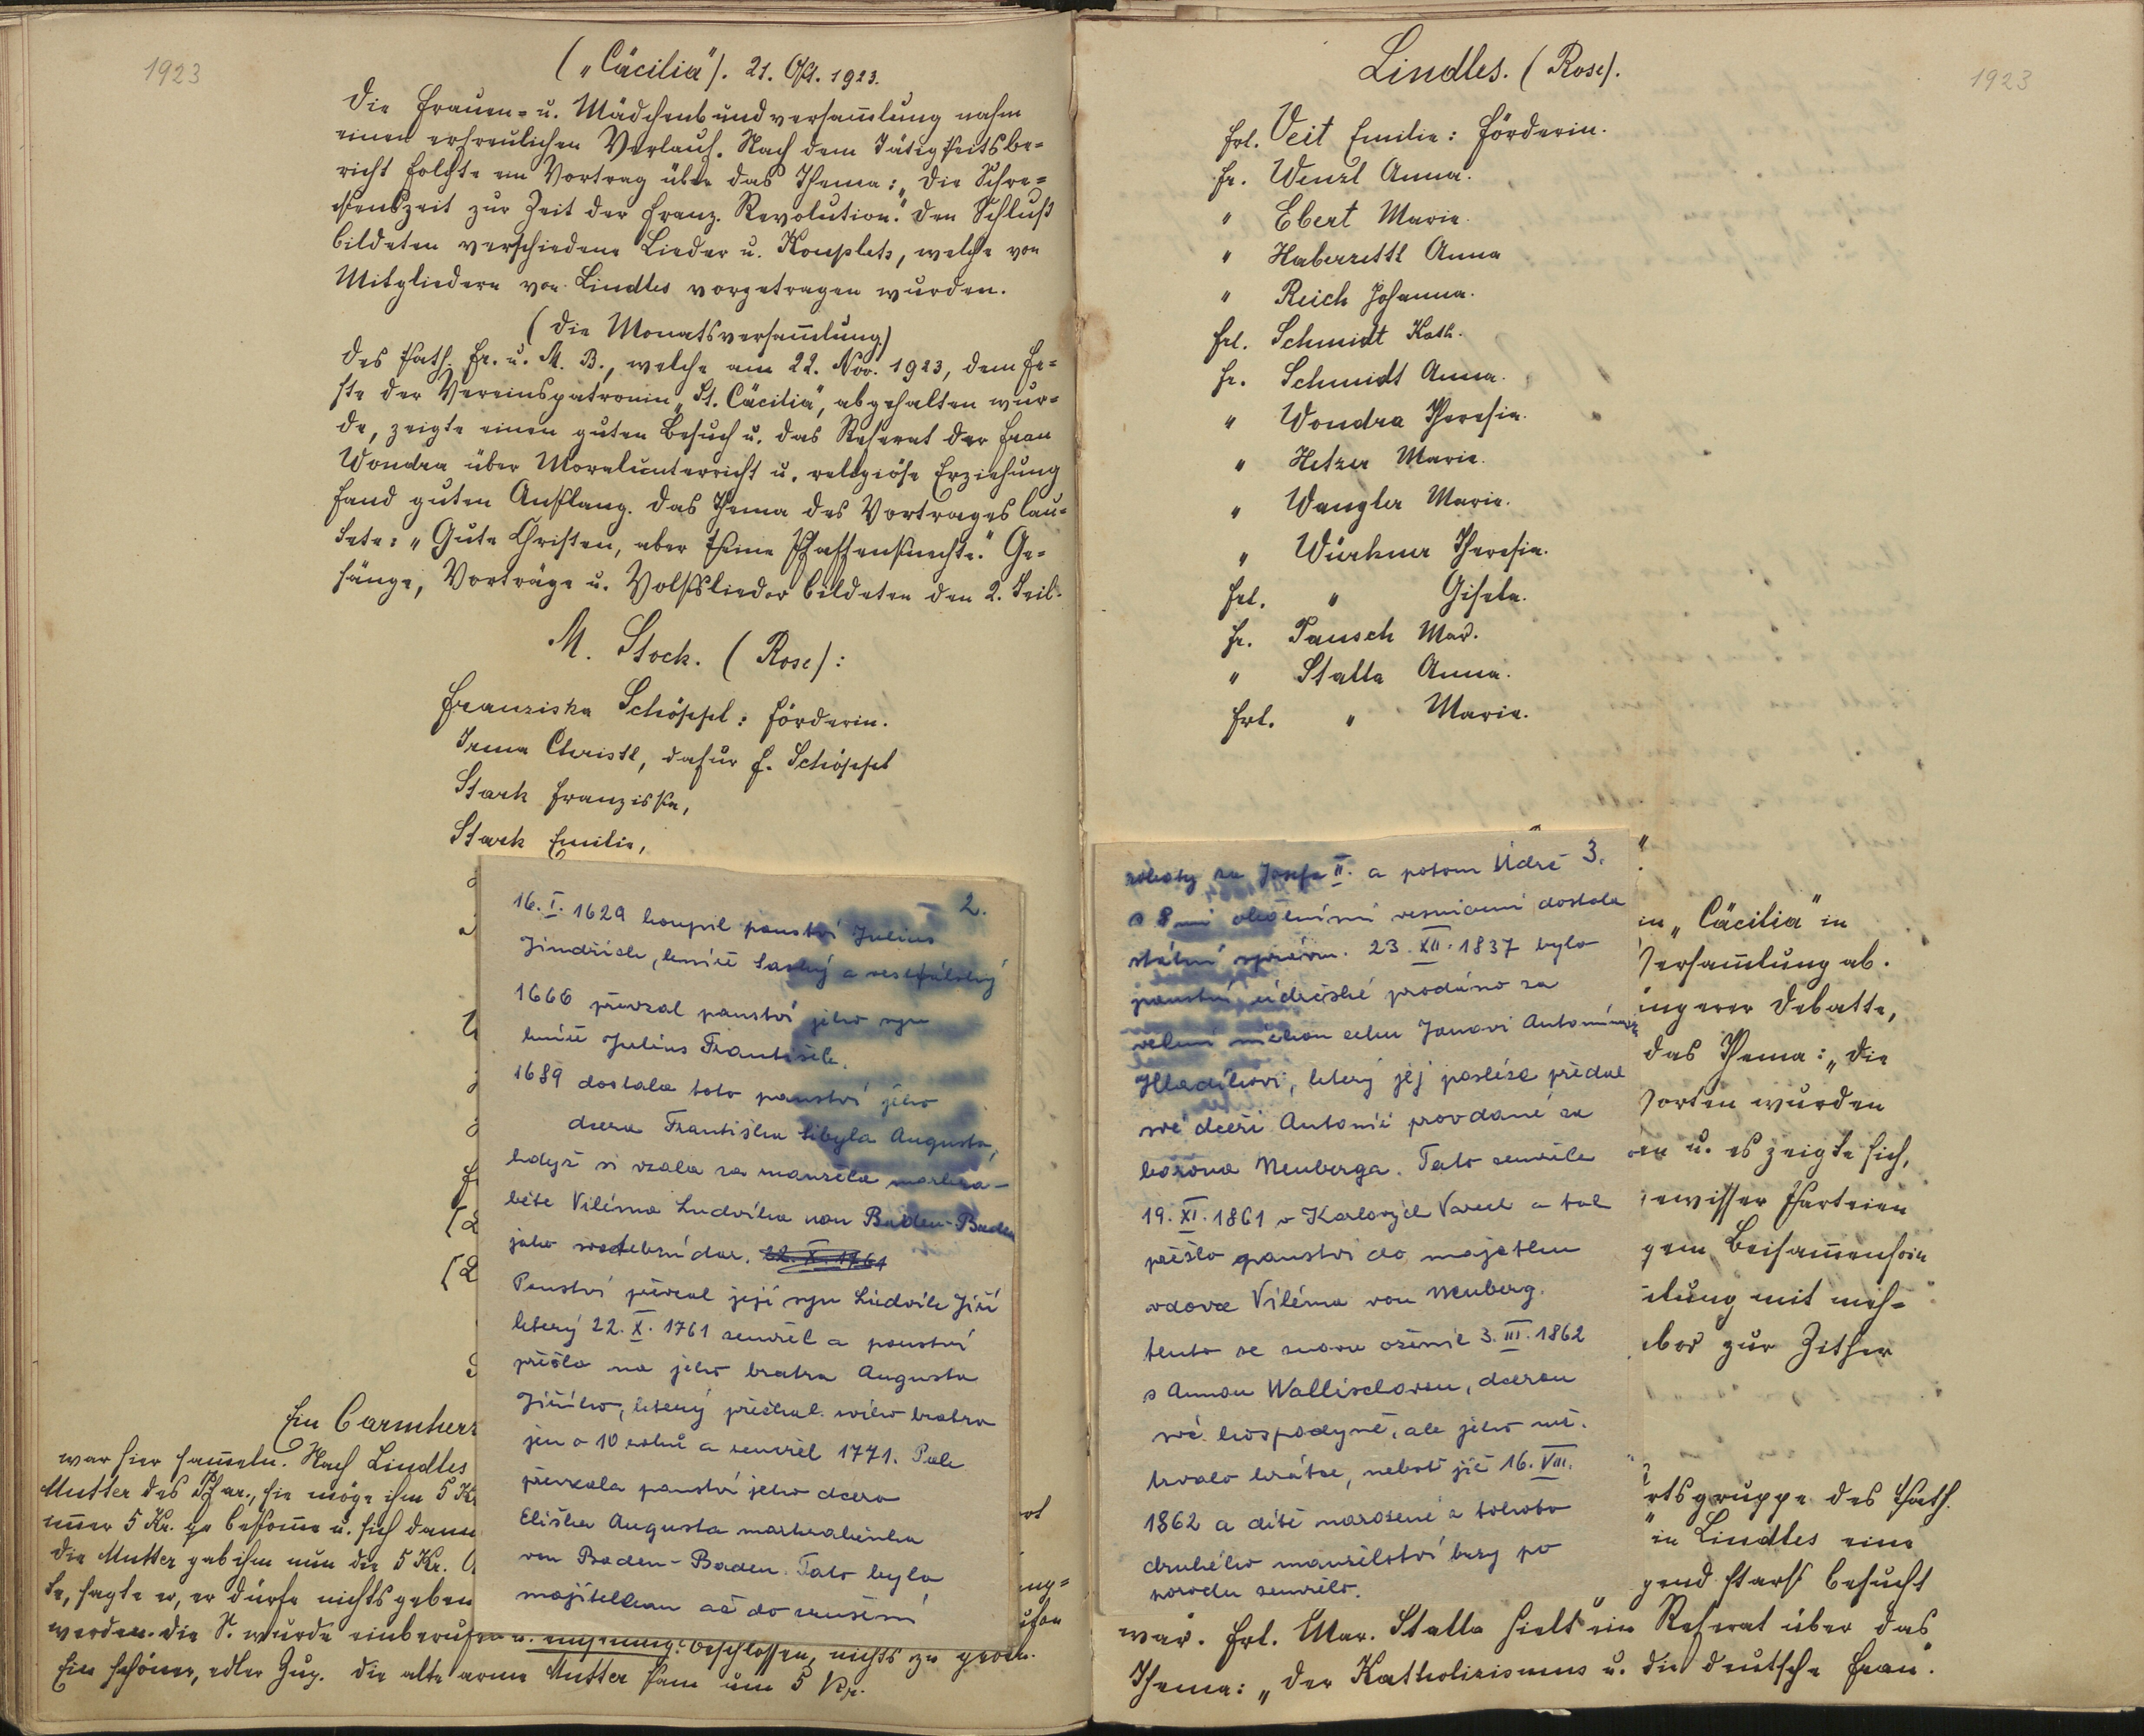 1923
("Cäcilia"). 21. Okt. 1923.
Die Frauen- u. Mädchenbundversam̄lung nahm
einen erfreulichen Verlauf. Nach dem Tätigkeitsbe-
richt folgte ein Vortrag über das Thema: "Die Schre-
ckenszeit zur Zeit der franz. Revolution." Den Schluß
bildeten verschiedene Lieder u. Kouplets, welche von
Mitgliedern von Lindles vorgetragen wurden.
(Die Monatsversam̄lung)
des kath. Fr. u. M. B., welche am 22. Nov. 1923, dem Fe-
ste der Vereinspatronin "St. Cäcilia", abgehalten wur-
de, zeigte einen guten Besuch u. das Referat der Frau
Wondra über Moralunterricht u. religiöse Erziehung
fand guten Anklang. Das Thema des Vortrages lau-
tete: "Gute Christen, aber keine Pfaffenknechte." Ge-
sänge, Vorträge u. Volkslieder bildeten den 2. Teil.
M. Stock. (Rose):
Franziska Schöppl: Förderin.
Irma Christl, dafür F. Schöppl
Stark Franziska,
Stark Emilie,
2.
16. I. 1629 koupil panství Julius
Jindřich, kníže Saský a vestfálský
1666 převzal panství jeho syn
kníže Julius František.
1689 dostala toto panství jeho
dcera Františka Sibyla Augusta,
když si vzala za manžela markra-
běte Viléma Ludvíka von Baden-Baden
jako svatební dar. 22. X. 1761
Panství převzal její syn Ludvík Jiří
který 22. X. 1761 zemřel a panství
přešlo na jeho bratra Augusta
Jiřího, který přečkal svého bratra
jen o 10 roků a zemřel 1771. Pak
převzala panství jeho dcera
Eliška Augusta markraběnka
von Baden-Baden. Tato byla
majitelkou až do zrušení
Ein Barmherz
war hier sam̄eln. Nach Lindles
Mutter des Pfar., sie möge ihm 5 K
im̄er 5 Kr. bekom̄e u. sich dann
die Mutter gab ihm nun die 5 Kr.
te, sagte er, er dürfe nichts geben
werden. Die S. wurde einberufen u. beschlossen, nichts zu geben.
Ein schöner, edler Zug. Die alte arme Mutter kam um 5 Kr.
1923
Lindles. (Rose).
Frl. Veit Emilie: Förderin.
Fr. Wenzl Anna.
" Ebert Marie.
" Haberzettl Anna
" Reich Johanna.
Frl. Schmidt Kath.
Fr. Schmidt Anna.
" Wondra Theresia.
" Hetzer Marie.
" Wangler Marie.
" Würkner Theresia.
Frl. " Gisela.
Fr. Pausch Mar.
" Stalla Anna.
Frl. " Marie.
3.
roboty za Josefa II. a potom Údrč
s 8 mi okolními vesnicemi dostala
státní správu. 23. XII. 1837 bylo
panství údrčské prodáno za
velmi nízkou cenu Janovi Antonínovi
Hladíkovi, který jej posléze předal
své dceři Antonii provdané za
barona Neuberga. Tato zemřela
19. XI. 1861 v Karlových Varech a tak
přešlo panství do majetku
vdovce Viléma von Neuberg.
tento se znovu oženil 3. III. 1862
s Annou Wallischovou, dcerou
své hospodyně, ale jeho ště.
trvalo krátce, neboť již 16. VIII.
1862 a dítě narozené z tohoto
druhého manželství brzy po
porodu zemřelo.
in "Cäcilia" in
Versam̄lung ab.
ingerer Debatte,
das Thema: "Die
Sorten wurden
en u. es zeigte sich,
gewisser Parteien
gem Beisam̄ensein
lung mit meh-
bor zur Zither
rtsgruppe des kath.
" in Lindles eine
gend stark besucht
war. Frl. Mar. Stalla hielt ein Referat über das
Thema: "Der Katholizismus u. die deutsche Frau".